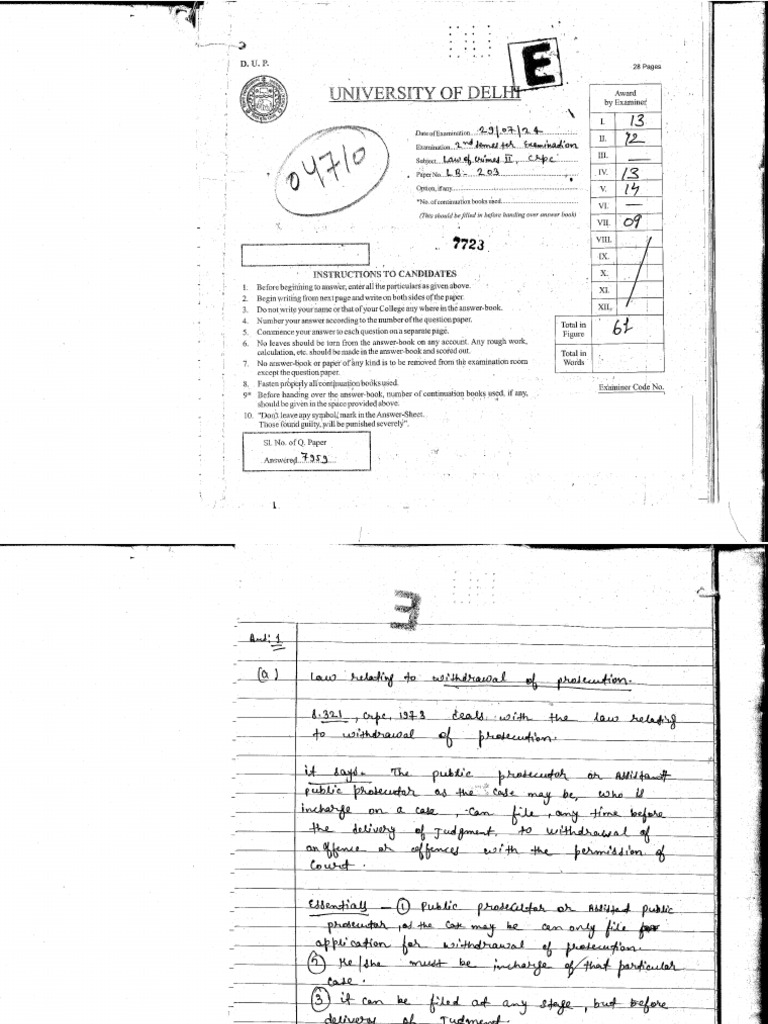 D. U. P.
E
28 Pages
UNIVERSITY OF DELHI
Award
by Examiner
I. 13
II. 12
III. —
IV. 13
V. 14
VI. —
VII. 09
VIII.
IX.
X.
XI.
XII.
Total in
Figure 61
Total in
Words
Examiner Code No.
04710
Date of Examination 29/07/24
Examination 2nd Semester Examination
Subject Law of Crimes II, Crpc
Paper No. LB - 203
Option, if any
*No. of continuation books used
(This should be filled in before handing over answer book)
7723
INSTRUCTIONS TO CANDIDATES
1. Before beginning to answer, enter all the particulars as given above.
2. Begin writing from next page and write on both sides of the paper.
3. Do not write your name or that of your College any where in the answer-book.
4. Number your answer according to the number of the question paper.
5. Commence your answer to each question on a separate page.
6. No leaves should be torn from the answer-book on any account. Any rough work,
calculation, etc. should be made in the answer-book and scored out.
7. No answer-book or paper of any kind is to be removed from the examination room
except the question paper.
8. Fasten properly all continuation books used.
9* Before handing over the answer-book, number of continuation books used, if any,
should be given in the space provided above.
10. "Don't leave any symbol, mark in the Answer-Sheet.
Those found guilty, will be punished severely".
Sl. No. of Q. Paper
Answered 7959
E
Ans: 1
(a) Law relating to withdrawal of prosecution.
S. 321, Crpc, 1973 deals with the law relating
to withdrawal of prosecution.
it says - The public prosecutor or Assistant
public prosecutor as the case may be, who is
incharge on a case, can file, any time before
the delivery of Judgment, to withdrawal of
an offence or offences with the permission of
Court.
Essentials - (1) Public prosecutor or Assisted public
prosecutor, as the case may be can only file
application for withdrawal of prosecution.
(2) He/she must be incharge of that particular
case.
(3) it can be filed at any stage, but before
delivery of Judgment.